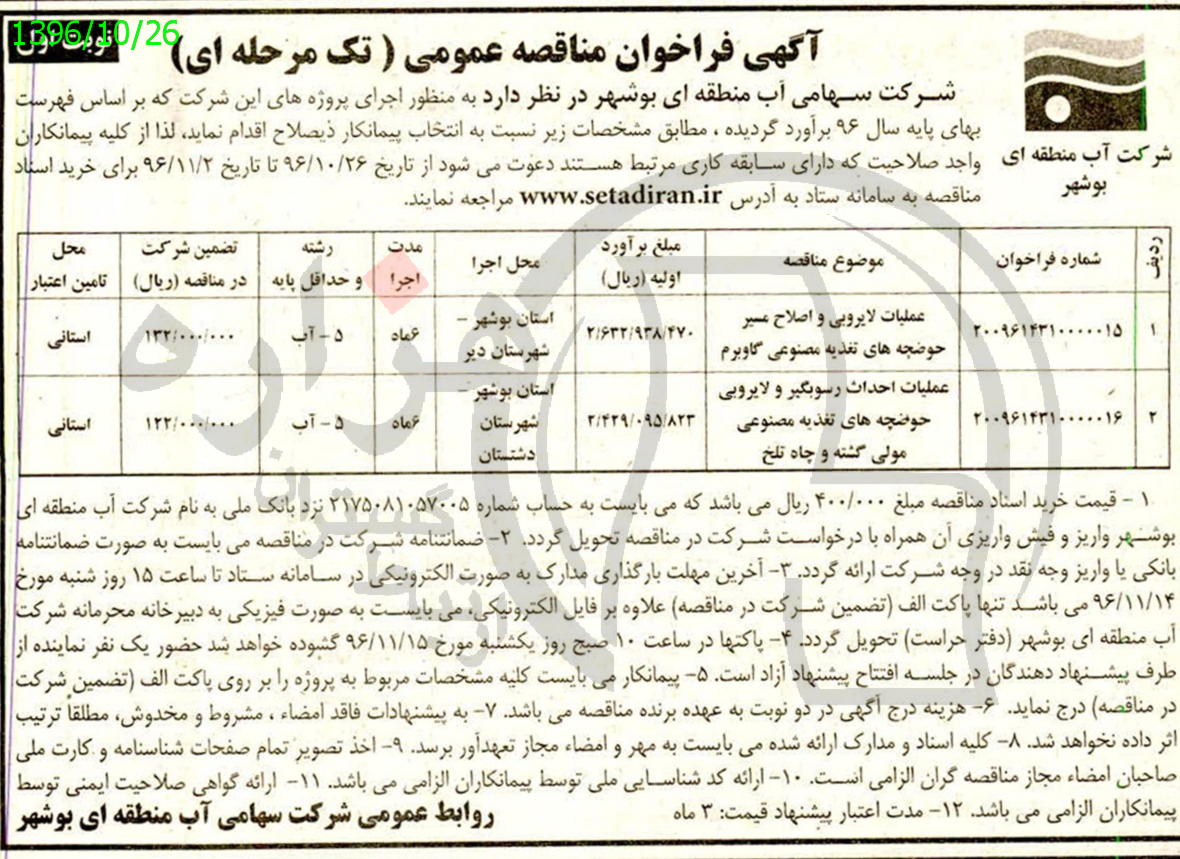 1396/10/26
نوبت اول
آگهی فراخوان مناقصه عمومی ( تک مرحله ای)
شرکت آب منطقه ای
بوشهر
شرکت سهامی آب منطقه ای بوشهر در نظر دارد به منظور اجرای پروژه های این شرکت که بر اساس فهرست
بهای پایه سال ۹۶ برآورد گردیده ، مطابق مشخصات زیر نسبت به انتخاب پیمانکار ذیصلاح اقدام نماید، لذا از کلیه پیمانکاران
واجد صلاحیت که دارای سابقه کاری مرتبط هستند دعوت می شود از تاریخ ۹۶/۱۰/۲۶ تا تاریخ ۹۶/۱۱/۲ برای خرید اسناد
مناقصه به سامانه ستاد به آدرس www.setadiran.ir مراجعه نمایند.
ردیف شماره فراخوان موضوع مناقصه مبلغ برآورد اولیه (ریال) محل اجرا مدت اجرا رشته و حداقل پایه تضمین شرکت در مناقصه (ریال) محل تامین اعتبار
۱ ۲۰۰۹۶۱۴۳۱۰۰۰۰۰۱۵ عملیات لایروبی و اصلاح مسیر حوضچه های تغذیه مصنوعی گاوبرم ۲/۶۳۲/۹۳۸/۴۷۰ استان بوشهر – شهرستان دیر ۶ماه ۵ – آب ۱۳۲/۰۰۰/۰۰۰ استانی
۲ ۲۰۰۹۶۱۴۳۱۰۰۰۰۰۱۶ عملیات احداث رسوبگیر و لایروبی حوضچه های تغذیه مصنوعی مولی گشته و چاه تلخ ۲/۴۲۹/۰۹۵/۸۲۳ استان بوشهر – شهرستان دشتستان ۶ماه ۵ – آب ۱۲۲/۰۰۰/۰۰۰ استانی
۱ – قیمت خرید اسناد مناقصه مبلغ ۴۰۰/۰۰۰ ریال می باشد که می بایست به حساب شماره ۲۱۷۵۰۸۱۰۵۷۰۰۵ نزد بانک ملی به نام شرکت آب منطقه ای
بوشهر واریز و فیش واریزی آن همراه با درخواست شرکت در مناقصه تحویل گردد. ۲– ضمانتنامه شرکت در مناقصه می بایست به صورت ضمانتنامه
بانکی یا واریز وجه نقد در وجه شرکت ارائه گردد. ۳– آخرین مهلت بارگذاری مدارک به صورت الکترونیکی در سامانه ستاد تا ساعت ۱۵ روز شنبه مورخ
۹۶/۱۱/۱۴ می باشد تنها پاکت الف (تضمین شرکت در مناقصه) علاوه بر فایل الکترونیکی، می بایست به صورت فیزیکی به دبیرخانه محرمانه شرکت
آب منطقه ای بوشهر (دفتر حراست) تحویل گردد. ۴– پاکتها در ساعت ۱۰ صبح روز یکشنبه مورخ ۹۶/۱۱/۱۵ گشوده خواهد شد حضور یک نفر نماینده از
طرف پیشنهاد دهندگان در جلسه افتتاح پیشنهاد آزاد است. ۵– پیمانکار می بایست کلیه مشخصات مربوط به پروژه را بر روی پاکت الف (تضمین شرکت
در مناقصه) درج نماید. ۶– هزینه درج آگهی در دو نوبت به عهده برنده مناقصه می باشد. ۷– به پیشنهادات فاقد امضاء ، مشروط و مخدوش، مطلقاً ترتیب
اثر داده نخواهد شد. ۸– کلیه اسناد و مدارک ارائه شده می بایست به مهر و امضاء مجاز تعهدآور برسد. ۹– اخذ تصویر تمام صفحات شناسنامه و کارت ملی
صاحبان امضاء مجاز مناقصه گران الزامی است. ۱۰– ارائه کد شناسایی ملی توسط پیمانکاران الزامی می باشد. ۱۱– ارائه گواهی صلاحیت ایمنی توسط
پیمانکاران الزامی می باشد. ۱۲– مدت اعتبار پیشنهاد قیمت: ۳ ماه
روابط عمومی شرکت سهامی آب منطقه ای بوشهر